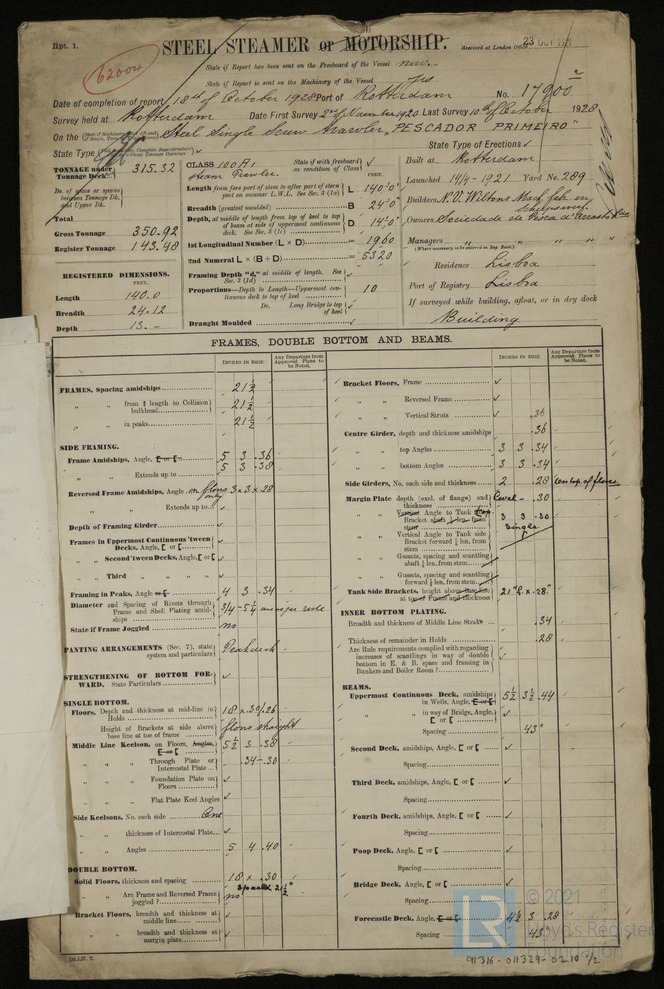 Rpt. 1.
STEEL STEAMER or MOTORSHIP.
Received at London Office 23 OCT 1928
62004
State if Report has been sent on the Freeboard of the Vessel
State if Report is sent on the Machinery of the Vessel Yes
Date of completion of report 18th of October 1928 Port of Rotterdam No. 17900
Survey held at Rotterdam Date First Survey 2nd of November 1920 Last Survey 10th of October 1928
On the Steel Single Screw Trawler "PESCADOR PRIMEIRO"
State Type
State Type of Erections ✓
TONNAGE under Tonnage Deck 315.32
Do. of space or spaces between Tonnage Dk. and Upper Dk.
Total
Gross Tonnage 350.92
Register Tonnage 143.48
REGISTERED DIMENSIONS.
FEET.
Length 140.0
Breadth 24.12
Depth 13.-
CLASS 100A1 State if with freeboard as condition of Class ✓
Steam Trawler.
FEET.
Length from fore part of stem to after part of stern post on summer L.W.L. See Sec. 3 (1a) L 140-0
Breadth (greatest moulded) B 24-0
Depth, at middle of length from top of keel to top of beam at side of uppermost continuous deck. See Sec. 3 (1c) D 14-0
1st Longitudinal Number (L × D) = 1960
2nd Numeral L × (B + D) = 5320
Framing Depth "d," at middle of length. See Sec. 3 (1d) ✓
Proportions—Depth to Length—Uppermost continuous deck to top of keel 10
Do. Long Bridge to top of keel
Draught Moulded ✓
Built at Rotterdam
Launched 14/4-1921 Yard No. 289
Builders N.V. Wiltons
Owners Sociedade de Pesca d'Arrasto Lda
Managers " " " "
(Where necessary to be entered in Reg. Book.)
Residence Lisboa
Port of Registry Lisboa
If surveyed while building, afloat, or in dry dock
Building
FRAMES, DOUBLE BOTTOM AND BEAMS.
INCHES IN SHIP.
Any Departure from Approved Plans to be Noted.
FRAMES, Spacing amidships 21 1/2
" " from 3/5 length to Collision bulkhead 21 1/2
" " in peaks 21 1/2
SIDE FRAMING.
Frame Amidships, Angle, [ or [ 5 3 .36
" " Extends up to 5 3 .38
Reversed Frame Amidships, Angle on floors only 3 x 3 x .28
" " Extends up to ✓
Depth of Framing Girder ✓
Frames in Uppermost Continuous 'tween Decks, Angle, [ or [ ✓
" Second 'tween Decks, Angle, [ or [ ✓
" Third " " " " ✓
Framing in Peaks, Angle or [ 4 3 .34
Diameter and Spacing of Rivets through Frame and Shell Plating amidships 3/4 - 5 1/4 as per rule
State if Frame Joggled no
PANTING ARRANGEMENTS (Sec. 7), state system and particulars Peakdeck
STRENGTHENING OF BOTTOM FORWARD. State Particulars ✓
SINGLE BOTTOM.
Floors, Depth and thickness at mid-line in Holds 18 x .30/.26
Height of Brackets at side above base line at toe of frame floors straight
Middle Line Keelson, on Floors, Angles, [ or [ 5 1/2 3 .38
" " Through Plate or Intercostal Plate .34-.30
" " Foundation Plate on Floors ✓
" " Flat Plate Keel Angles ✓
Side Keelsons, No. each side One
" " thickness of Intercostal Plate ✓
" " Angles 5 4 .40
DOUBLE BOTTOM.
Solid Floors, thickness and spacing 18 x .30 spaced 21 1/2"
" " Are Frame and Reversed Frame joggled? no
Bracket Floors, breadth and thickness at middle line ✓
" " breadth and thickness at margin plate ✓
INCHES IN SHIP.
Any Departure from Approved Plans to be Noted.
Bracket Floors, Frame ✓
" " Reversed Frame ✓
" " Vertical Struts ✓ .36
Centre Girder, depth and thickness amidships .36
" " top Angles 3 3 .34
" " bottom Angles 3 3 .34
Side Girders, No. each side and thickness 2 .28 on top of floors
Margin Plate depth (excl. of flange) and thickness Level - .30
" " Vertical Angle to Tank Bracket abaft 1/4 len. from stem 3 3 .30 Single
" " Vertical Angle to Tank side Bracket forward 1/4 len. from stem
" " Gussets, spacing and scantling abaft 1/4 len. from stem
" " Gussets, spacing and scantling forward 1/4 len. from stem
Tank Side Brackets, height above base line at toe of Frame and thickness 21" h. x .28"
INNER BOTTOM PLATING.
Breadth and thickness of Middle Line Strake .34
Thickness of remainder in Holds .28
Are Rule requirements complied with regarding increases of scantlings in way of double bottom in E. & B. space and framing in Bunkers and Boiler Room? ✓
BEAMS.
Uppermost Continuous Deck, amidships in Wells, Angle, [ or [ 5 1/2 3 1/2 .44
" " in way of Bridge, Angle, [ or [ ✓
Spacing 43"
Second Deck, amidships, Angle, [ or [ ✓
Spacing
Third Deck, amidships, Angle, [ or [ ✓
Spacing
Fourth Deck, amidships, Angle, [ or [ ✓
Spacing
Poop Deck, Angle, [ or [ ✓
Spacing
Bridge Deck, Angle, [ or [ ✓
Spacing
Forecastle Deck, Angle, [ or [ 4 1/2 3 .28
Spacing 43"
© 2021
LR
Lloyd's Register
Foundation
011316 - 011329 - 0210 1/2